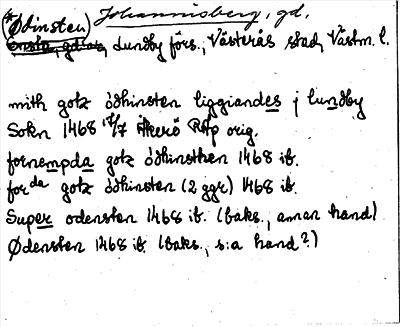 *Ødinsten) Johannisberg, gd.
Ensta, gd (av) Lundby förs., Västerås stad, Västm. l.
mith gotz ódhinsten liggiandes j lundby
Sokn 1468 17/7 Åkerö RAp orig.
fornempda gotz ódhinsthen 1468 ib.
for da gotz ódhinsten (2 ggr) 1468 ib.
Super odensten 1468 ib. (baks., annan hand)
Ødensten 1468 ib. (baks., s:a hand?)